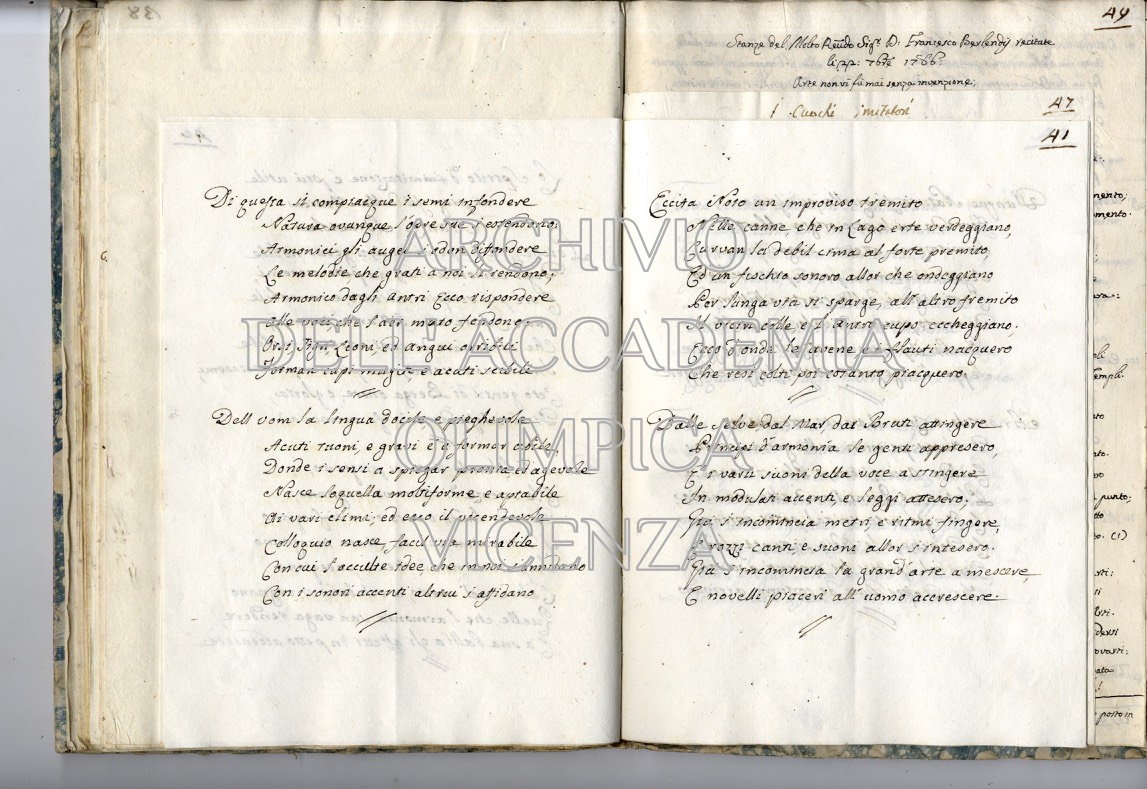 49
Stanze del Molto Reúdo Sigr. D: Francesco Berlendis recitate
li 22: 7bre 1766:
Arte non vi fù mai senza invenzione;
47
i Cuochi imitatori
41
Di questa si compiacque i semi infondere
Natura ovunque l'opre sue si estendono;
Armonici gli augei
diffondere
Le melodie che grati a noi si rendono;
Armonico dagli antri Ecco rispondere
alle voci, che l'aer muto fendono.
Orsi, Leoni, ed angui orribili
Forman cupi e acuti sibili
Dell' uom la lingua docile e pieghevole
Acuti tuoni, e gravi è a formar abile,
Donde i sensi a spiegar pronta ed agevole
Nasce loquella mobiforme, e aptabile
Ai vari climi; ed ecco il vicendevole
Colloquio nasce, facil via mirabile
Con cui l'occulte idee che in noi s'annidano
Con i sonori accenti altrui s'affidano
Eccita Noto un improviso tremito
Nelle canne che in Lago erte verdeggiano,
Curvan la debil cima al forte premito,
Ed un fischio sonoro allor che ondeggiano
Per lunga via si sparge, all' altro fremito
Il vicin colle, e l'antro cupo eccheggiano.
Ecco d'onde le avene e i flauti nacquero
Che resi colti poi cotanto piacquero.
Dalle selve, dal Mar, dai Bruti attingere
Principi d'armonia le genti appresero,
E i varii suoni della voce a stringere
In modulati accenti, e leggi attesero;
Qui s'incomincia metri e ritmi fingere,
E rozzi canti, e suoni allor s'intesero.
Già s'incomincia la grand' arte a mescere,
E novelli piaceri all' uomo accrescere.
(1)
ARCHIVIO
DELL'ACCADEMIA
OLIMPICA
VICENZA